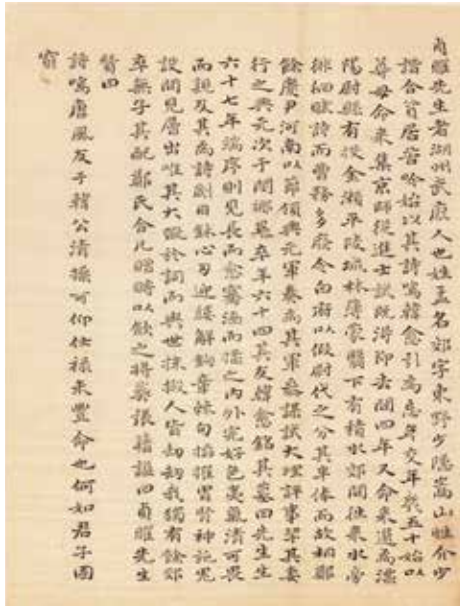 貞曜先生者湖州武康人也姓孟名郊字東野少隱嵩山性介少
諧合窮居苦吟始以其詩鳴韓愈引為忘年交年幾五十始以
尊母命來集京師從進士試既得即去間四年又命來選為溧
陽尉縣有投金瀨平陵城林薄蒙翳下有積水郊間往來水旁
徘徊賦詩而曹務多廢令白府以假尉代之分其半俸而故相鄭
餘慶尹河南以節領興元軍奏為其軍參謀試大理評事挈其妻
行之興元次于閿鄉暴卒年六十四其友韓愈銘其墓曰先生生
六十七年端序則見長而愈騫涵而揉之內外完好色夷氣清可畏
而親及其為詩劌目鉥心刃迎縷解鉤章棘句掐擢胃腎神施鬼
設間見層出唯其大翫於詞而與世抹摋人皆劫劫我獨有餘郊
卒無子其配鄭氏合凡贈賻以餘之將葬張籍諡曰貞曜先生
贊曰
詩鳴唐風友于韓公清操可仰仕祿未豐命也何如君子固
窮